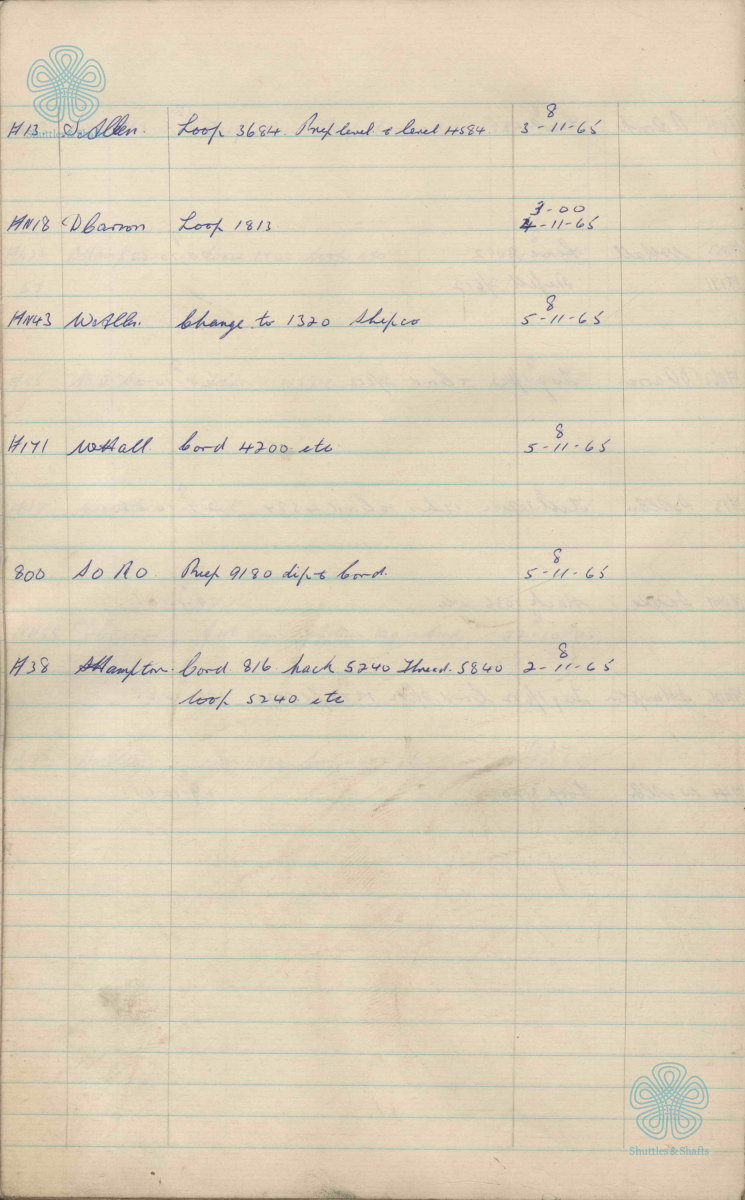 8
H13 S Allen. Loop 3684. Prep level & level 4584 3-11-65
3-00
HN18 D Carson Loop 1813 4-11-65
8
HN43 W Allen. Change to 1320 Shepco 5-11-65
8
H171 W Hall Cord 4200 etc 5-11-65
8
800 S O R O. Prep 9180 dip & Cord. 5-11-65
8
H38 Hampton. Cord 816 hack 5240 Thread. 5840 2-11-65
loop 5240 etc
Shuttles & Shafts